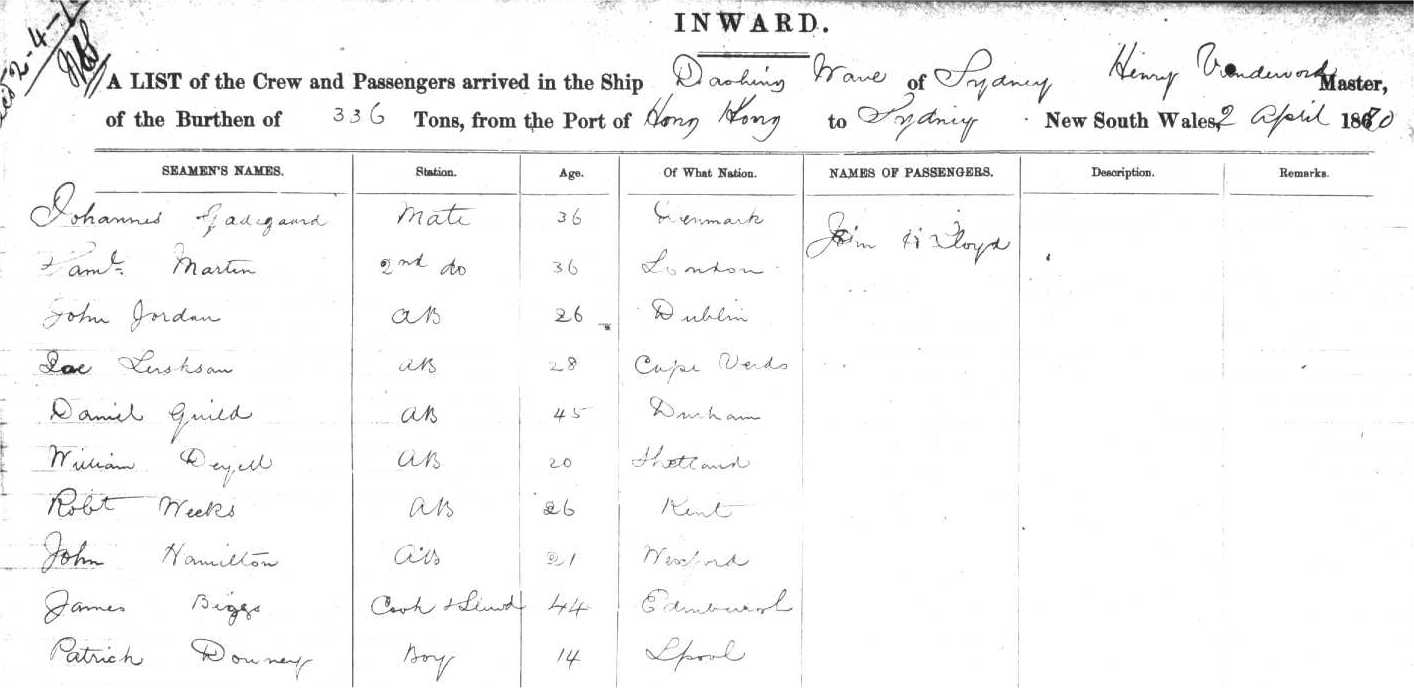 2-4-
INWARD.
A LIST of the Crew and Passengers arrived in the Ship Dashing Wave of Sydney Henry Master,
of the Burthen of 336 Tons, from the Port of Hong Kong to Sydney New South Wales, 2 April 1870
SEAMEN'S NAMES. Station. Age. Of What Nation. NAMES OF PASSENGERS. Description. Remarks.
Johannes Mate 36 Denmark John H Floyd
Saml. Martin 2nd do 36 London
John Jordan AB 26 Dublin
Joe AB 28 Cape Verds
Daniel Guild AB 45 Durham
William Deyell AB 20 Shetland
Robt Weeks AB 26 Kent
John Hamilton AB 21 Wexford
James Biggs Cook & Stewd 44 Edinburgh
Patrick Downey Boy 14 Lpool